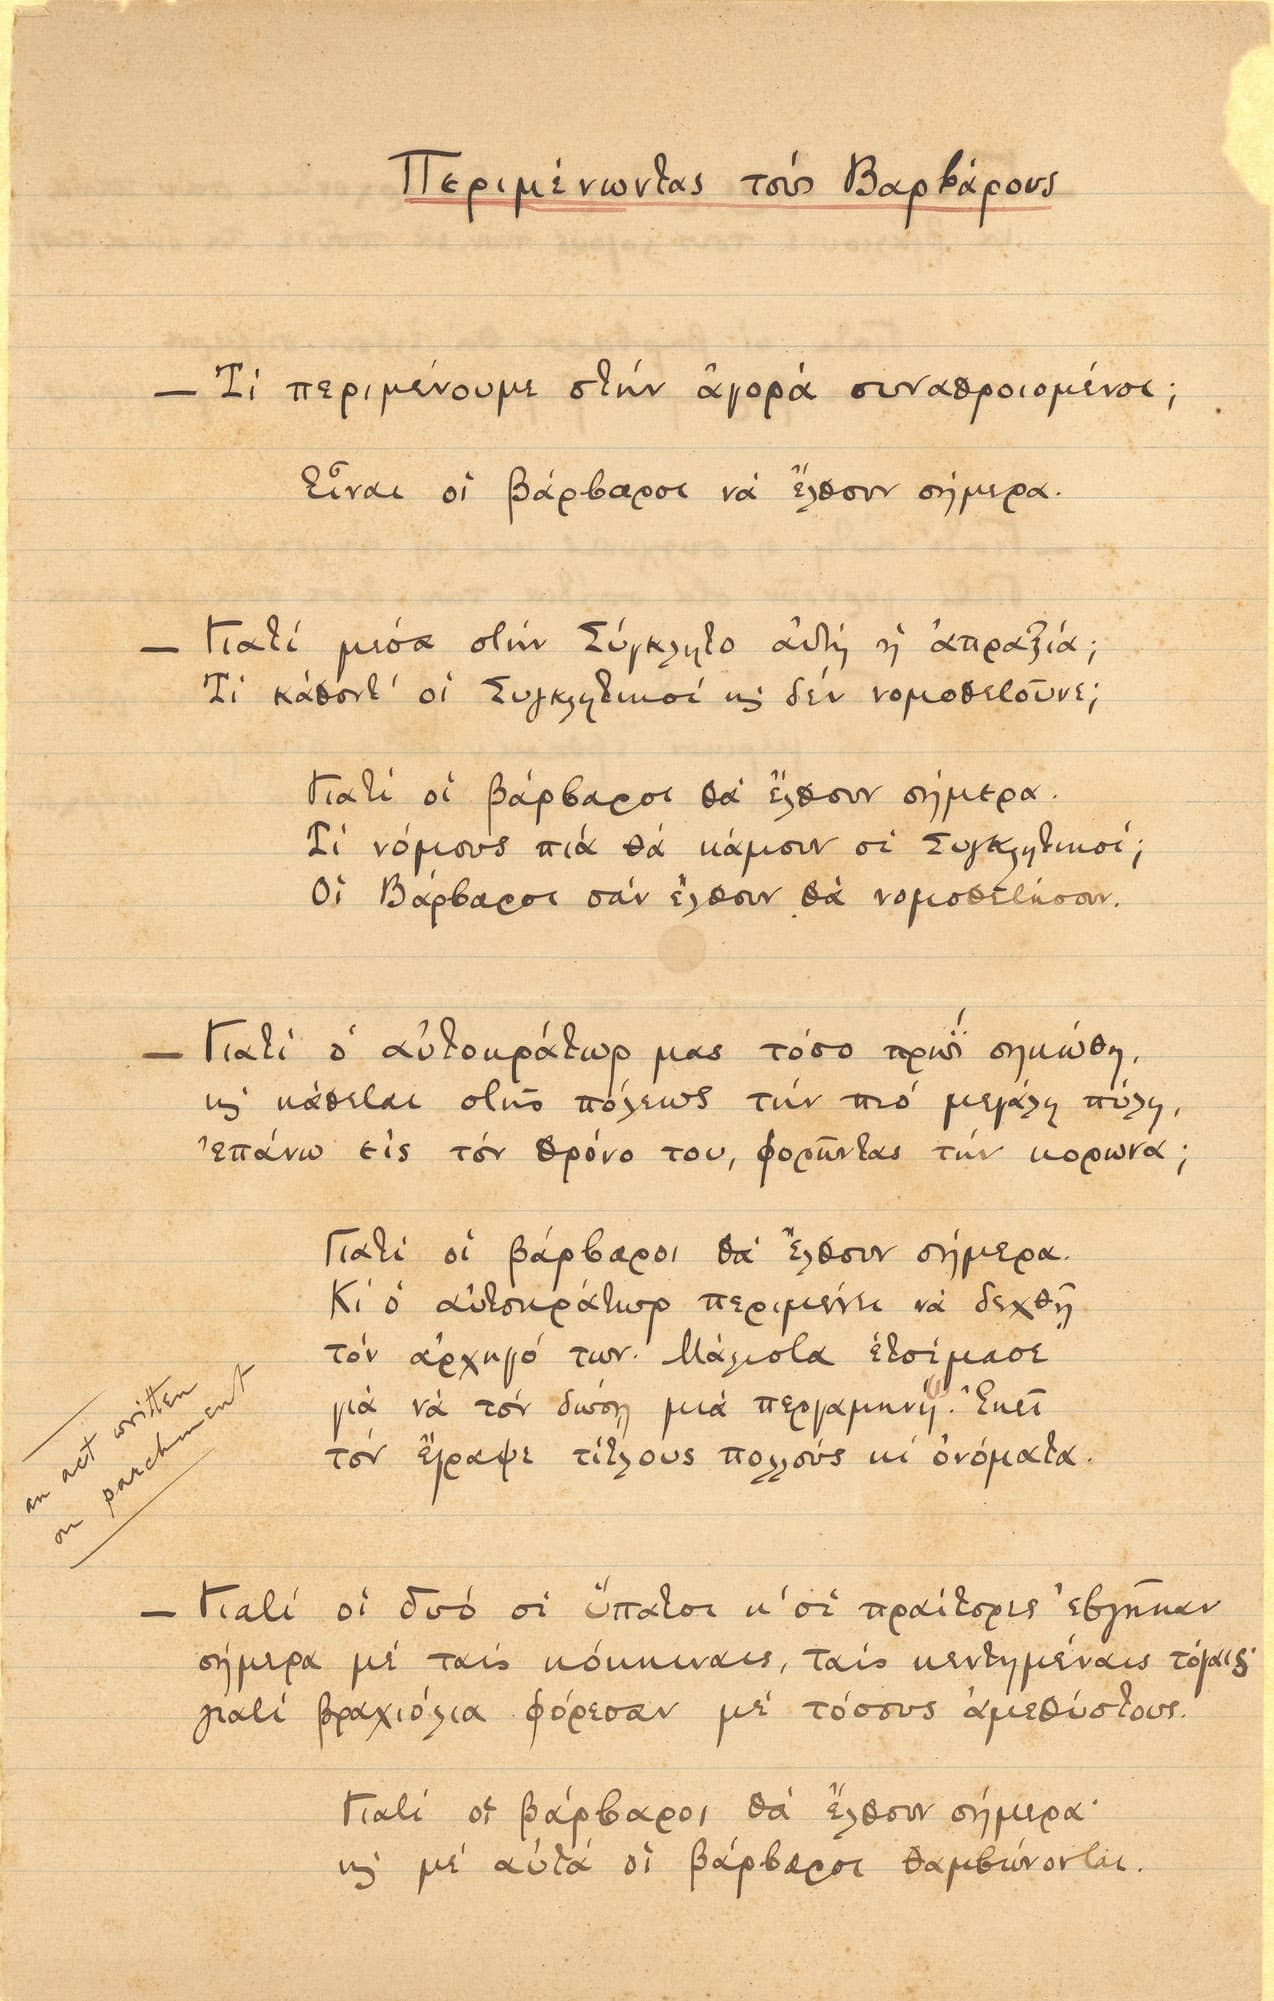 Περιμένωντας τοὺς Βαρβάρους
— Τί περιμένουμε στὴν ἀγορὰ συναθροισμένοι;
Εἶναι οἱ βάρβαροι νὰ ἔλθουν σήμερα.
— Γιατί μέσα στὴν Σύγκλητο αὐτὴ ἡ ἀπραξία;
Τί κάθοντ' οἱ Συγκλητικοὶ κ̣ δὲν νομοθετοῦνε;
Γιατὶ οἱ βάρβαροι θὰ ἔλθουν σήμερα.
Τί νόμους πιὰ θὰ κάμουν οἱ Συγκλητικοί;
Οἱ Βάρβαροι σὰν ἔλθουν θὰ νομοθετήσουν.
— Γιατί ὁ αὐτοκράτωρ μας τόσο πρωῒ σηκώθη,
κ̣ κάθεται στῆς πόλεως τὴν πιὸ μεγάλη πύλη,
ἐπάνω εἰς τὸν θρόνο του, φορῶντας τὴν κορώνα;
Γιατὶ οἱ βάρβαροι θὰ ἔλθουν σήμερα.
Κι ὁ αὐτοκράτωρ περιμένει νὰ δεχθῇ
τὸν ἀρχηγό των. Μάλιστα ἑτοίμασε
γιὰ νὰ τὸν δώσῃ μιὰ περγαμηνή. Ἐκεῖ
τὸν ἔγραψε τίτλους πολλοὺς κι ὀνόματα.
an act written
on parchment
— Γιατί οἱ δυό οἱ ὕπατοι κ' οἱ πραίτορες ἐβγῆκαν
σήμερα μὲ ταὶς κόκκιναις, ταὶς κεντημέναις τόγαις·
γιατί βραχιόλια φόρεσαν μὲ τόσους ἀμεθύστους.
Γιατὶ οἱ βάρβαροι θὰ ἔλθουν σήμερα·
κ̣ μὲ αὐτὰ οἱ βάρβαροι θαμβώνονται.